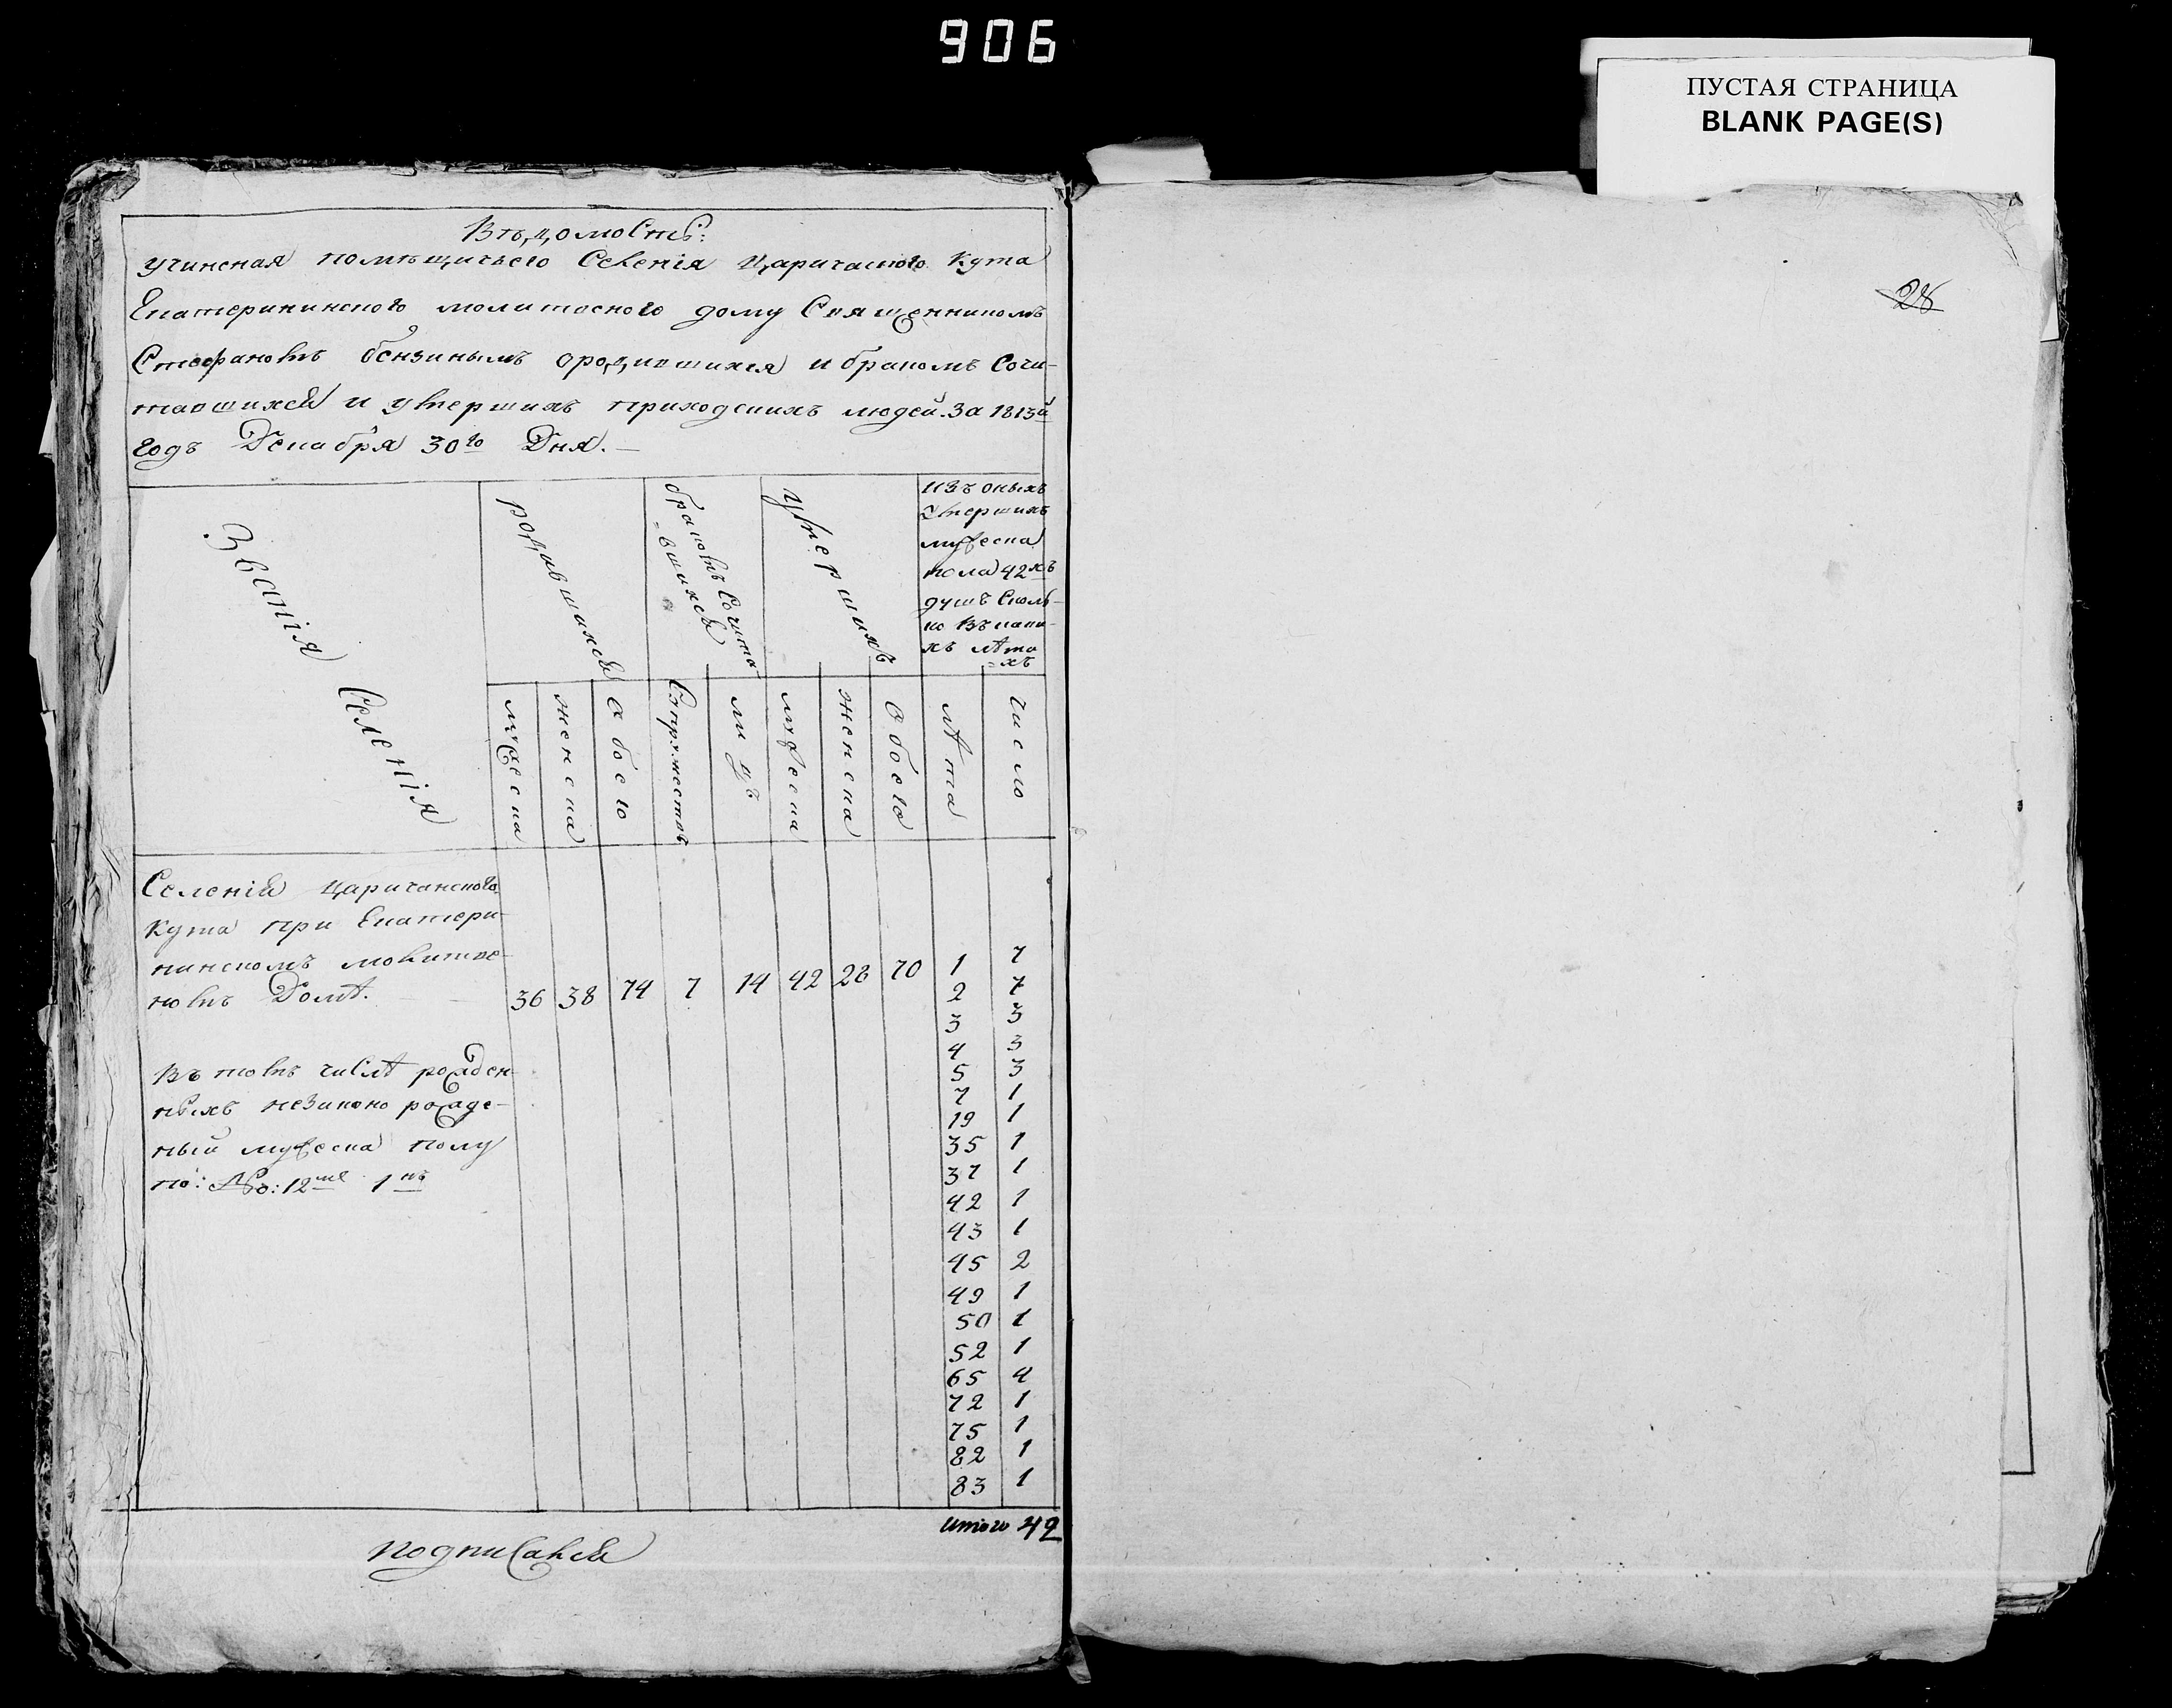 906
ПУСТАЯ СТРАНИЦА
BLANK PAGE(S)
28
Вѣдомость:
учиненая помѣщичьего Селенія Царичанского Кута
Екатерининского молитвеного дому Священникомъ
Стефаномъ бензинымъ ородившихся и бракомъ Сочи-
тавшихся и умершихъ приходскихъ людей. За 1813й
годъ Декабря 30го Дня.—
Званія Селенія
родившихся
бракомъ Сочита
=вшихся
умершихъ
изъ оныхъ
умершихъ
мужеска
пола 42хъ
душъ Сколь-
ко Въ каки-
хъ лѣта
=хъ
мужеска
женска
обоего
Супружествъ
лицъ
мужеска
женска
Обоего
лѣта
число
Селенія Царичанского
Кута при Екатери-
нинскомъ молитве-
номъ Домѣ.
36 38 74 7 14 42 28 70
1 7
2 7
3 3
4 3
5 3
7 1
19 1
35 1
37 1
42 1
43 1
45 2
49 1
50 1
52 1
65 4
72 1
75 1
82 1
83 1
Въ томъ числѣ рожден-
ныхъ незаконо рожде-
ный мужеска полу
по: №: 12ме 1нъ
итого 42
подписался